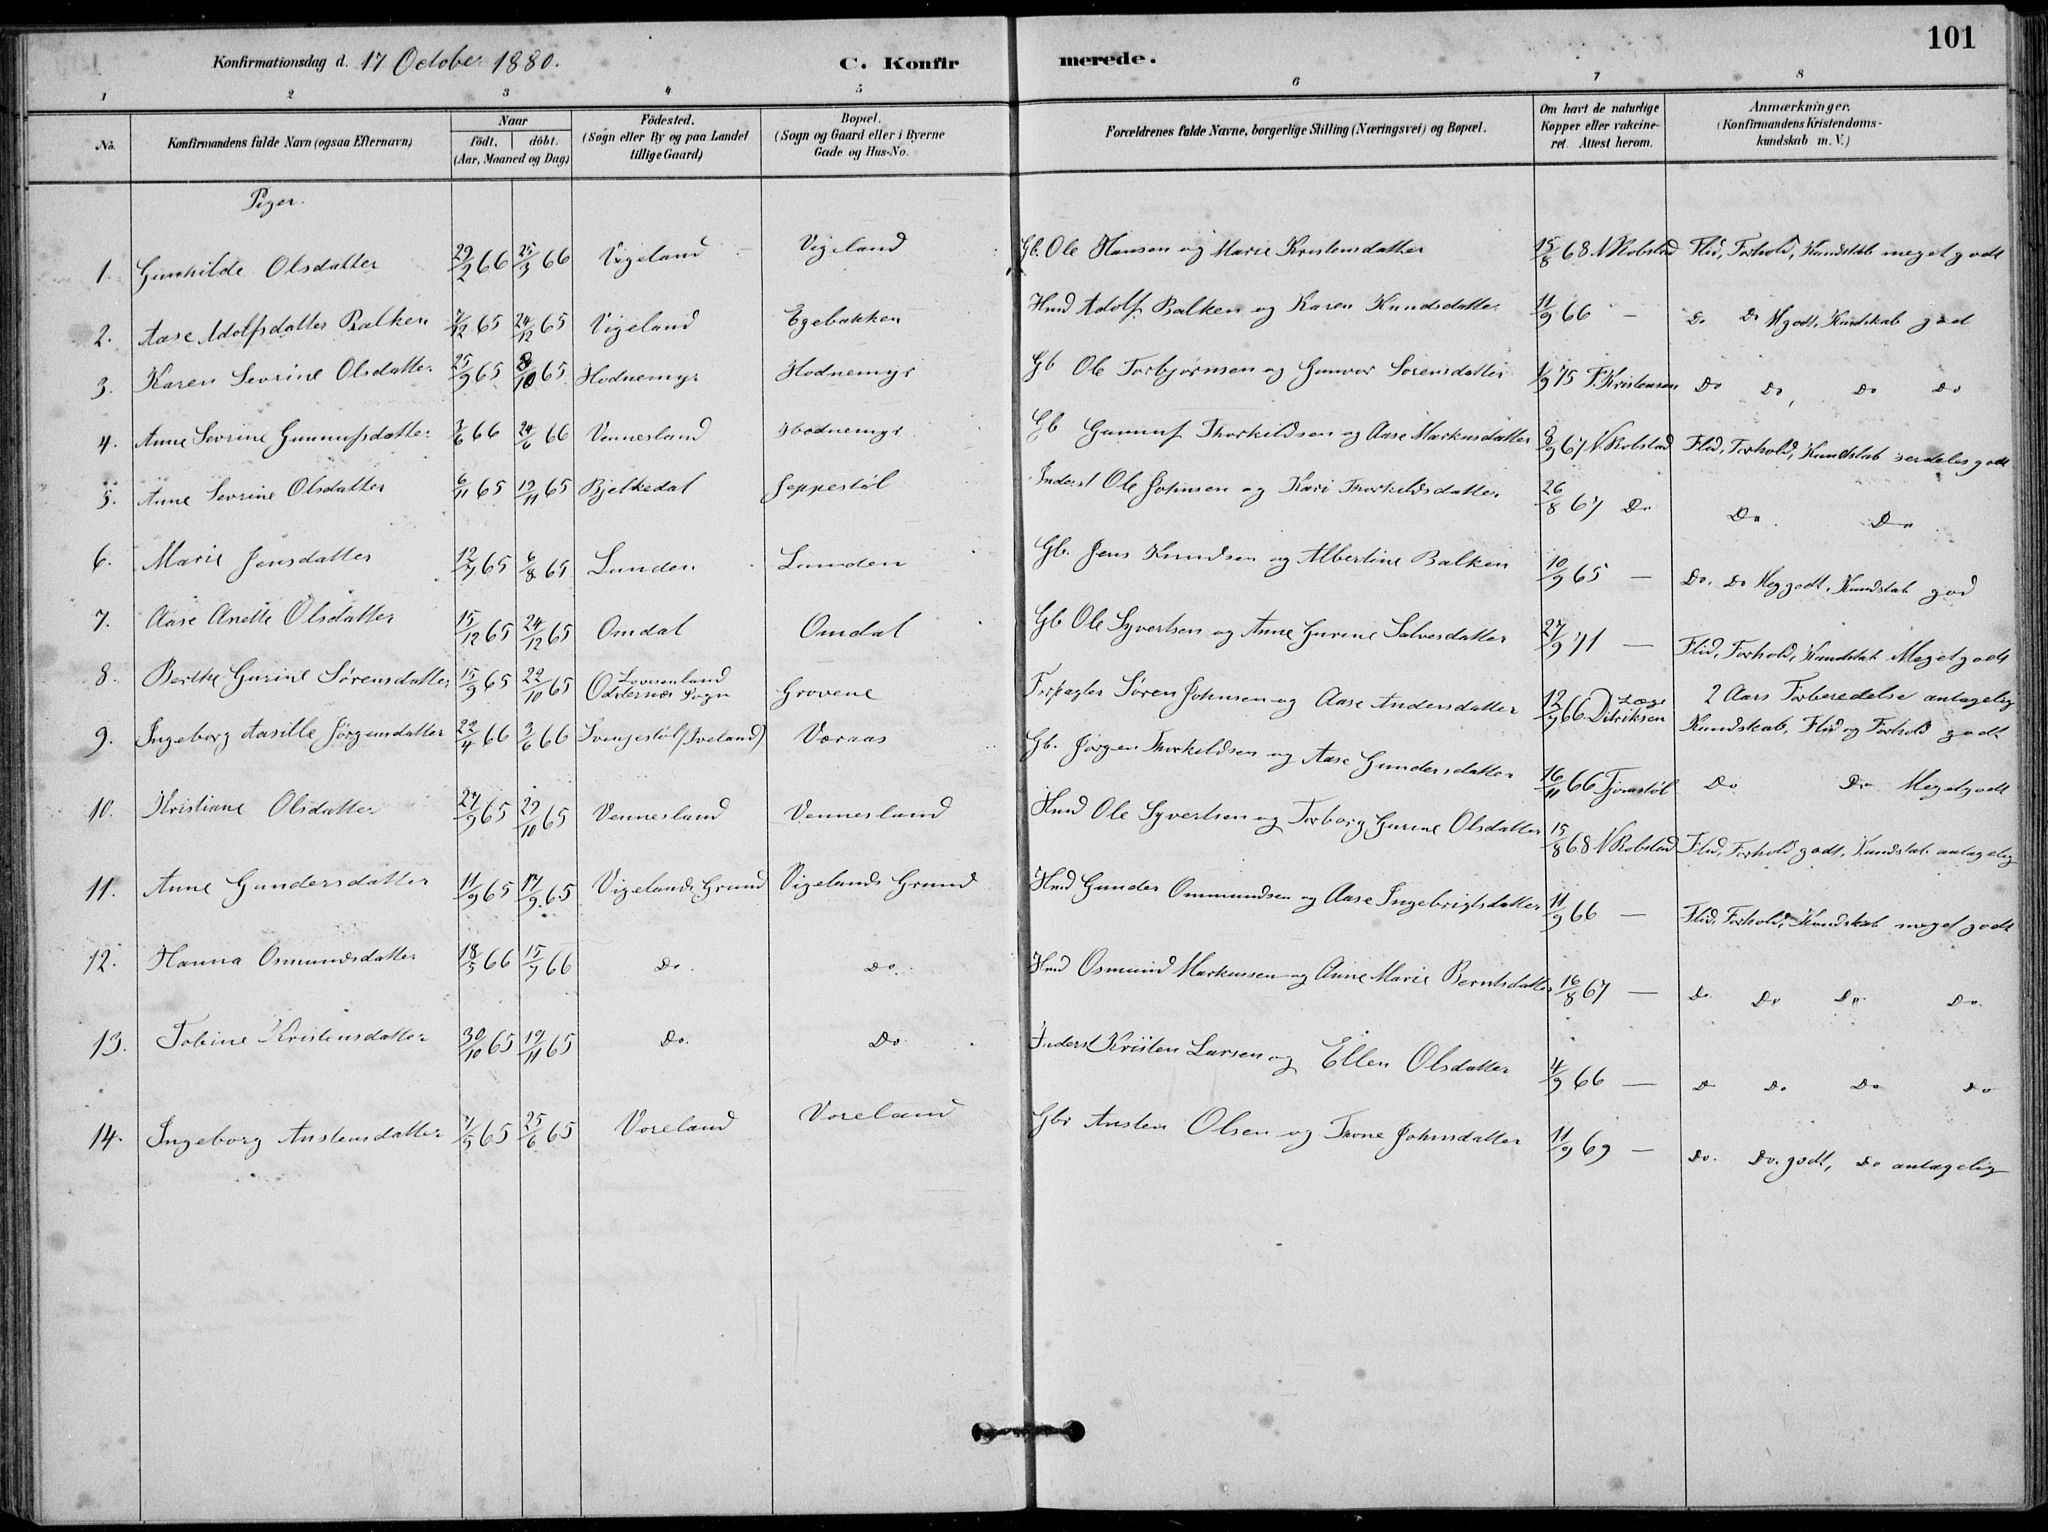 101
Konfirmationsdag d. 17 October 1880. C. Konfirmerede.
1 2 3 4 5 6 7 8
No. Konfirmandens fulde Navn (ogsaa Efternavn) Naar födt. döbt. (Aar, Maaned og Dag) Födested. (Sogn eller By og paa Landet tillige Gaard) Bopæl. (Sogn og Gaard eller i Byerne Gade og Hus-No. Forældrenes fulde Navne, borgerlige Stilling (Næringsvei) og Bopæl. Om havt de naturlige Kopper eller vakcineret. Attest herom. Anmærkninger. (Konfirmandens Kristendomskundskab m. V.)
Piger.
1. Gunhilde Olsdatter 29/2 66 25/3 66 Vigeland Vigeland Gb. Ole Hansen og Marie Kristensdatter 15/8 68 N Robstad Flid, Forhold, Kundskab meget godt
2. Aase Adolfsdatter Balken 7/12 65 24/12 65 Vigeland Egebakken Hmd Adolf Balken og Karen Knudsdatter 11/9 66 — Do Do M godt, Kundskab god
3. Karen Sevrine Olsdatter 25/9 65 8/10 65 Hodnemyr Hodnemyr Gb Ole Torbjørnsen og Gunvor Sørensdatter 1/9 75 F. Kristensen Do Do, Do Do
4. Anne Sevrine Gunnufsdatter 3/6 66 24/6 66 Vennesland Hodnemyr Gb Gunnuf Thorkildsen og Aase Markusdatter 3/9 67 N. Robstad Flid, Forhold, Kundskab serdeles godt
5. Anne Sevrine Olsdatter 6/11 65 19/11 65 Bjelkedal Jeppestøl Inderst Ole Johnsen og Kari Thorkildsdatter 26/8 67 Do Do. Do
6. Marie Jensdatter 12/7 65 6/8 65 Lunden Lunden Gb. Jens Knudsen og Albertine Balken 10/9 65 — Do. Do Meg godt, Kundskab god
7. Aase Anette Olsdatter 15/12 65 24/12 65 Omdal Omdal Gb Ole Syvertsen og Anne Gurine Salvesdatter 27/9 71 — Flid, Forhold, Kundskab Meget godt
8. Berthe Gurine Sørensdatter 15/9 65 22/10 65 Lonneland Oddernæs Sogn Grovene Forpagter Søren Johnsen og Aase Andersdatter 12/9 66 Læge Ditriksen 2 Aars Forberedelse antagelig Kundskab, Flid og Forhold godt
9. Ingeborg Aasille Jørgensdatter 22/4 66 3/6 66 Svenjestøl (Iveland) Væraas Gb. Jørgen Thorkildsen og Aase Gundersdatter 16/11 66 Tjomstøl Do Do Meget godt
10. Kristiane Olsdatter 27/9 65 29/10 65 Vennesland Vennesland Hmd Ole Syvertsen og Torborg Gurine Olsdatter 15/8 68 N Robstad Flid, Forhold godt, Kundskab antagelig
11. Anne Gundersdatter 11/9 65 17/9 65 Vigelands Grund Vigelands Grund Hmd Gunder Ommundsen og Aase Ingebrigtsdatter 11/9 66 — Flid, Forhold, Kundskab meget godt
12. Hanna Osmundsdatter 18/5 66 15/7 66 Do. Do. Hmd Osmund Markussen og Anne Marie Berntsdatter 16/8 67 — Do. Do Do Do.
13. Tobine Kristensdatter 30/10 65 19/11 65 Do. Do Inderst Kristen Larsen og Ellen Olsdatter 4/9 66 — D Do Do Do
14. Ingeborg Anstensdatter 7/5 65 25/6 65 Voreland Voreland Gbr Ansten Olsen og Thone Johnsdatter 11/9 69 — Do. Do. godt, Do antagelig